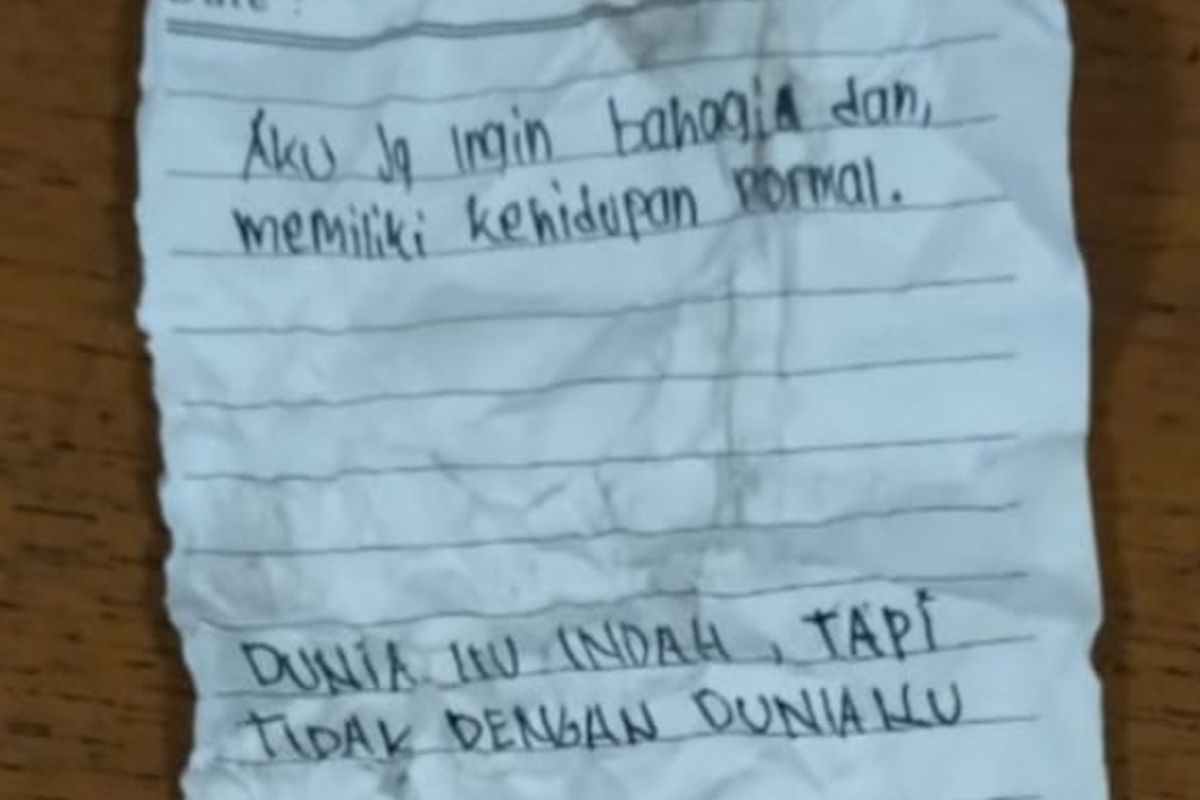 Date :
Aku Jg Ingin bahagia dan,
memiliki kehidupan normal.
DUNIA ITU INDAH, TAPI
TIDAK DENGAN DUNIAKU